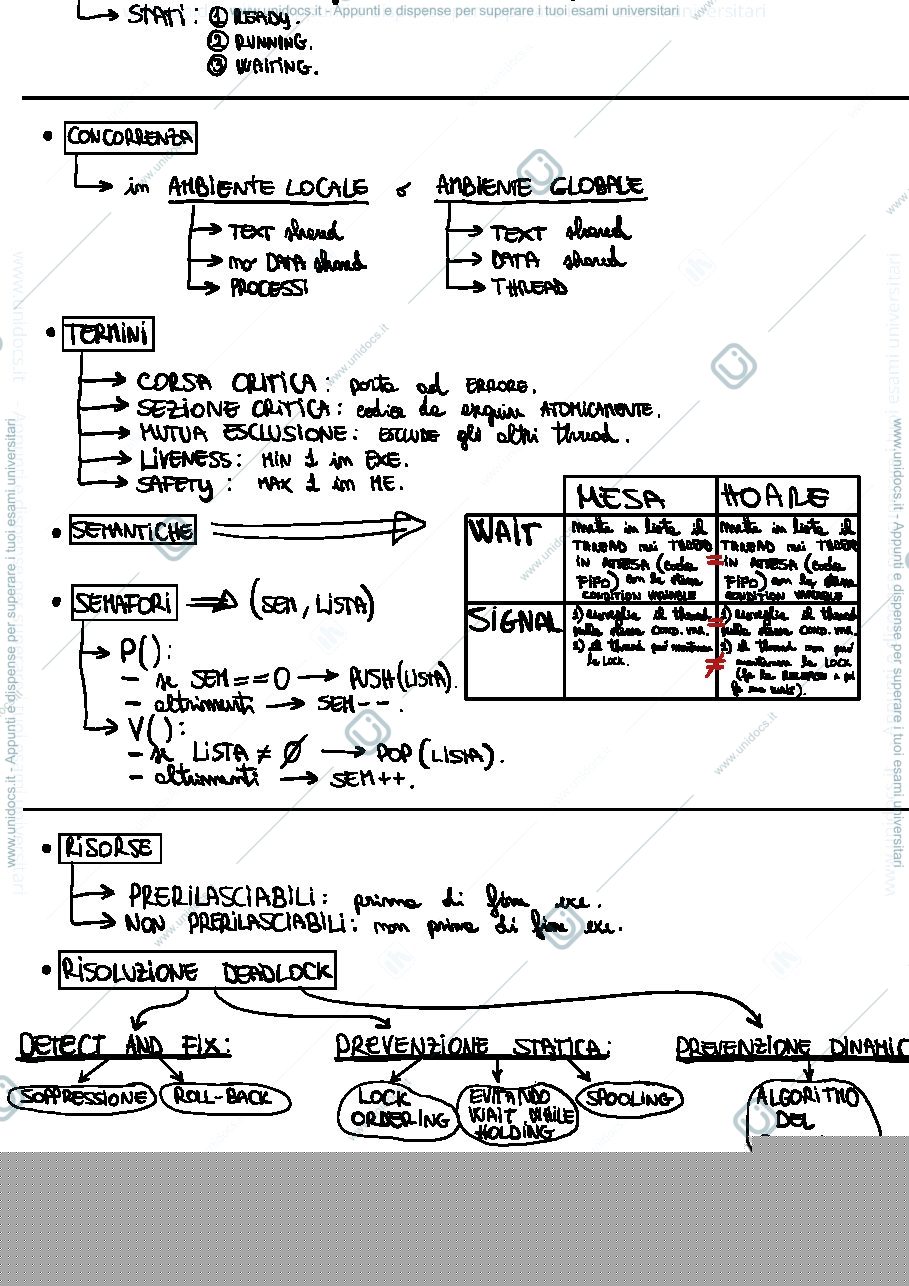 STATI: ① READY.
www.unidocs.it - Appunti e dispense per superare i tuoi esami universitari
② RUNNING.
③ WAITING.
• CONCORRENZA
→ in AMBIENTE LOCALE o AMBIENTE GLOBALE
→ TEXT shared
→ no DATA shared
→ PROCESSI
→ TEXT shared
→ DATA shared
→ THREAD
• TERMINI
→ CORSA CRITICA: porta ad ERRORE.
→ SEZIONE CRITICA: codice da eseguire ATOMICAMENTE.
→ MUTUA ESCLUSIONE: ESCLUDE gli altri thread.
→ LIVENESS: MIN 1 in EXE.
→ SAFETY: MAX 1 in ME.
• SEMANTICHE
MESA HOARE
WAIT
mette in lista il
THREAD nei THREAD
IN ATTESA (coda
FIFO) con la stessa
CONDITION VARIABLE
≠
mette in lista il
THREAD nei THREAD
IN ATTESA (coda
FIFO) con la stessa
CONDITION VARIABLE
SIGNAL
1) risveglia il thread
nella stessa COND. VAR.
2) il thread può mantenere
la LOCK.
=
≠
1) risveglia il thread
nella stessa COND. VAR.
2) il thread non può
mantenere la LOCK
(la RILASCIA e poi
fa una WAIT).
• SEMAFORI ⇒ (SEM, LISTA)
→ P():
- se SEM==0 → PUSH(LISTA).
- altrimenti → SEM--.
→ V():
- se LISTA ≠ Ø → POP(LISTA).
- altrimenti → SEM++.
• RISORSE
→ PRERILASCIABILI: prima di fine exe.
→ NON PRERILASCIABILI: non prima di fine exe.
• RISOLUZIONE DEADLOCK
DETECT AND FIX: PREVENZIONE STATICA: PREVENZIONE DINAMIC
SOPPRESSIONE ROLL-BACK
LOCK
ORDERING
EVITANDO
WAIT WHILE
HOLDING
SPOOLING
ALGORITMO
DEL
www.unidocs.it - Appunti e dispense per superare i tuoi esami universitari
www.unidocs.it - Appunti e dispense per superare i tuoi esami universitari